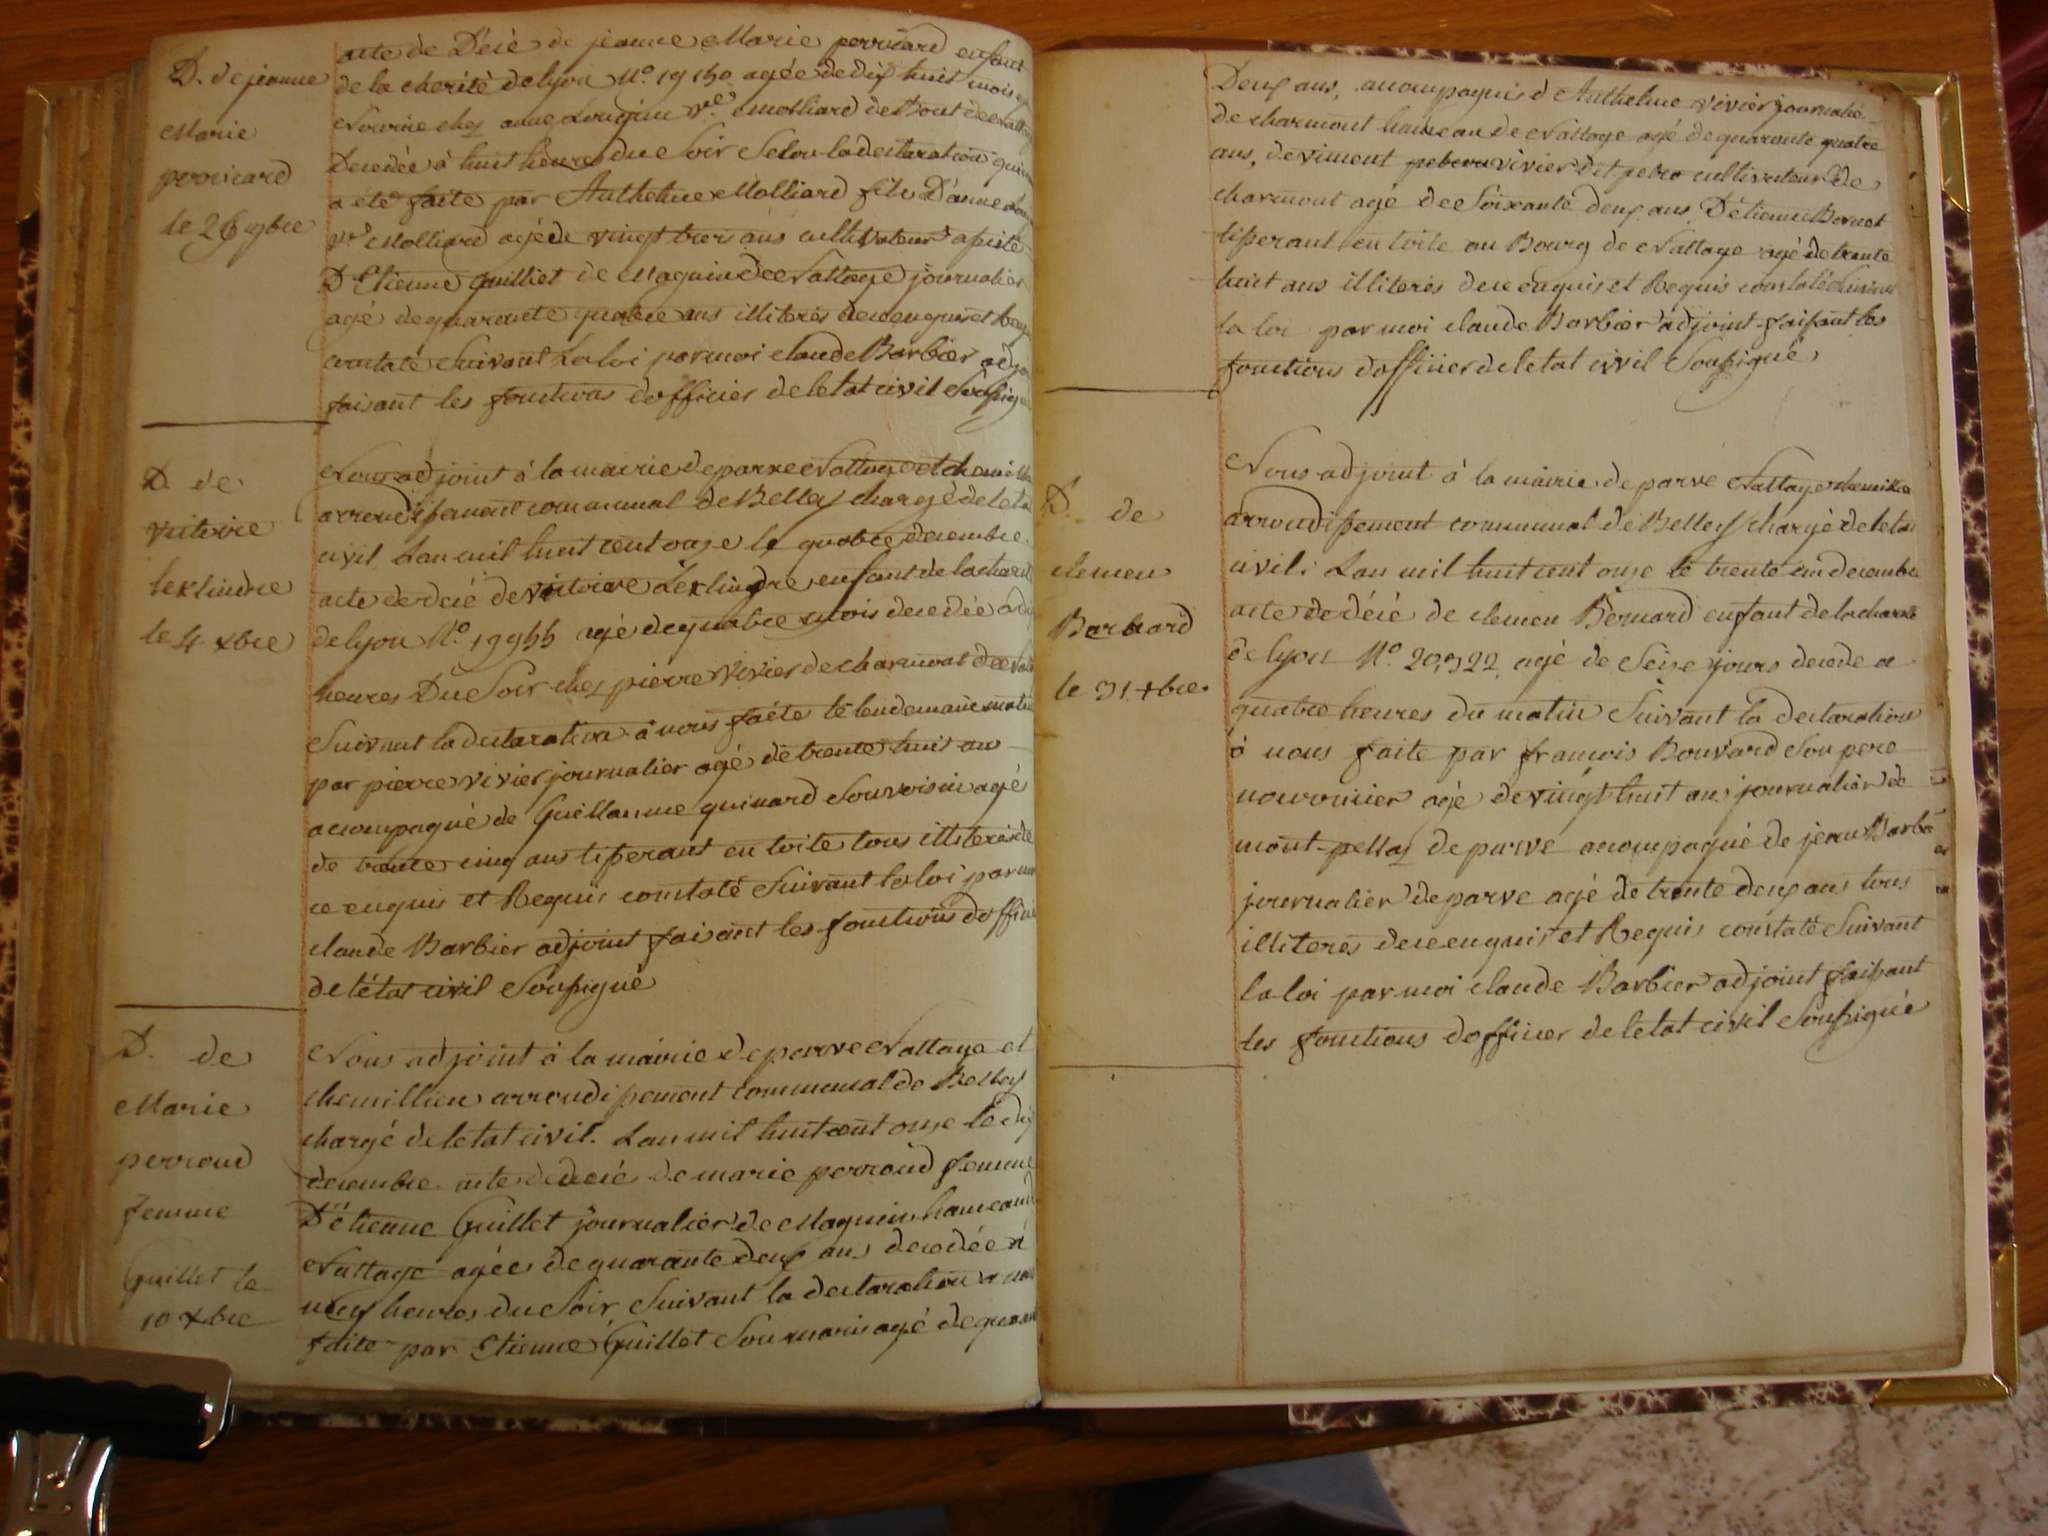 D. de jeanne
Marie
perriard
le 26 9bre
acte de Décé de jeanne Marie perriard enfant
de la cherité de lyon N°. 19150 agée de dix huit mois
Nourrie chez anne Ve. Molliard de Bout de
Decedée à huit heures du Soir Selon la declaration qui
a été faite par Anthelme Molliard fils D'anne
Ve Molliard agé de vingt trois ans cultivateur
D'Etienne guilliet de Maguin de Nattage journalier
agé de quarente quatre ans illiterés de ce enquis et
constaté Suivant La loi par moi claude Barbier
faisant les fonctions d'officier de letat civil
D. de
victoire
lexlindre
le 4 xbre
Nous adjoint à la mairie de parve Nattage et
arrondissement communal de Belley chargé de leta
civil Lan mil huit cent onze le quatre decembre
acte de decé de victoire Lexlindre enfant de la
de lyon N°. 19955 agé de quatre mois decedée a
heures Du Soir chez pierre Vivier de charmont de
Suivant la declaration à nous faite le lendemain
par pierre vivier journalier agé de trente huit an
acompagné de Guillaume guinard Son voisin agé
de trente cinq ans tisserant en toile tous illiterés de
ce enquis et Requis constaté Suivant la loi par
claude Barbier adjoint faisant les fonctions
de létat civil Soussigné
D. de
Marie
perroud
femme
Guillet le
10 xbre
Nous adjoint à la mairie de parve Nattage et
chemillieu arrondissement communal de Belley
chargé de letat civil. Lan mil huit cent onze le dix
decembre acte de decé de marie perroud femme
D'étienne Guillet journalier de Maguin hameau
Nattage agée de quarante deux ans decedée à
neuf heures du Soir Suivant la declaration a
faite par Etienne Guillet Son mari agé de
Deux ans, acompagnié d'Anthelme vivier
de charmont hameau de Nattage agé de quarante quatre
ans, de vivier dit petro cultivateur de
charmont agé de Soixante deux ans D'étienne Bornet
tisserant en toile au Bourg de Nattage agé de trente
huit ans illiterés de ce enquis et Requis constaté
la loi par moi claude Barbier adjoint faisant les
fonctions d'officier de letat civil Soussigné
D. de
clemen
Barnard
le 31 xbre.
Nous adjoint à la mairie de parve Nattage
arrondissement communal de Belley chargé de leta
civil. Lan mil huit cent onze le trente un decembre
acte de décé de clemen Bernard enfant de la
de lyon N°. 20,922 agé de Seize jours decede a
quatre heures du matin Suivant la declaration
à nous faite par francois Bouvard Son pere
nourricier agé de vingt huit ans journalier de
mont-pellas de parve acompagné de jean Barbe
journalier de parve agé de trente deux ans tous
illiteres de ce enquis et Requis constaté Suivant
la loi par moi claude Barbier adjoint faisant
les fonctions d'officier de letat civil Soussigné